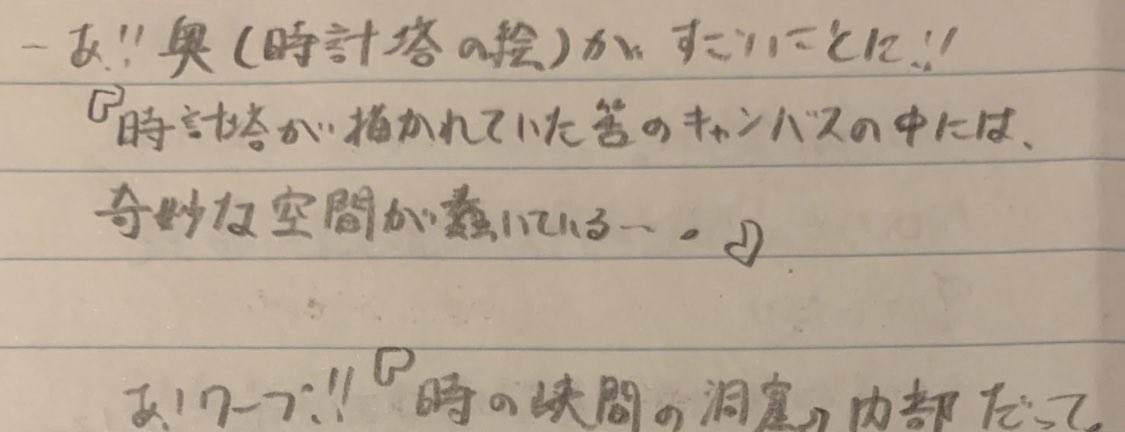 ーあ!!奥(時計塔の絵)が、すごいことに!!
『時計塔が描かれていた筈のキャンバスの中には、
奇妙な空間が蠢いている…。』
あ!ワープ!!『時の狭間の洞窟』内部だって。